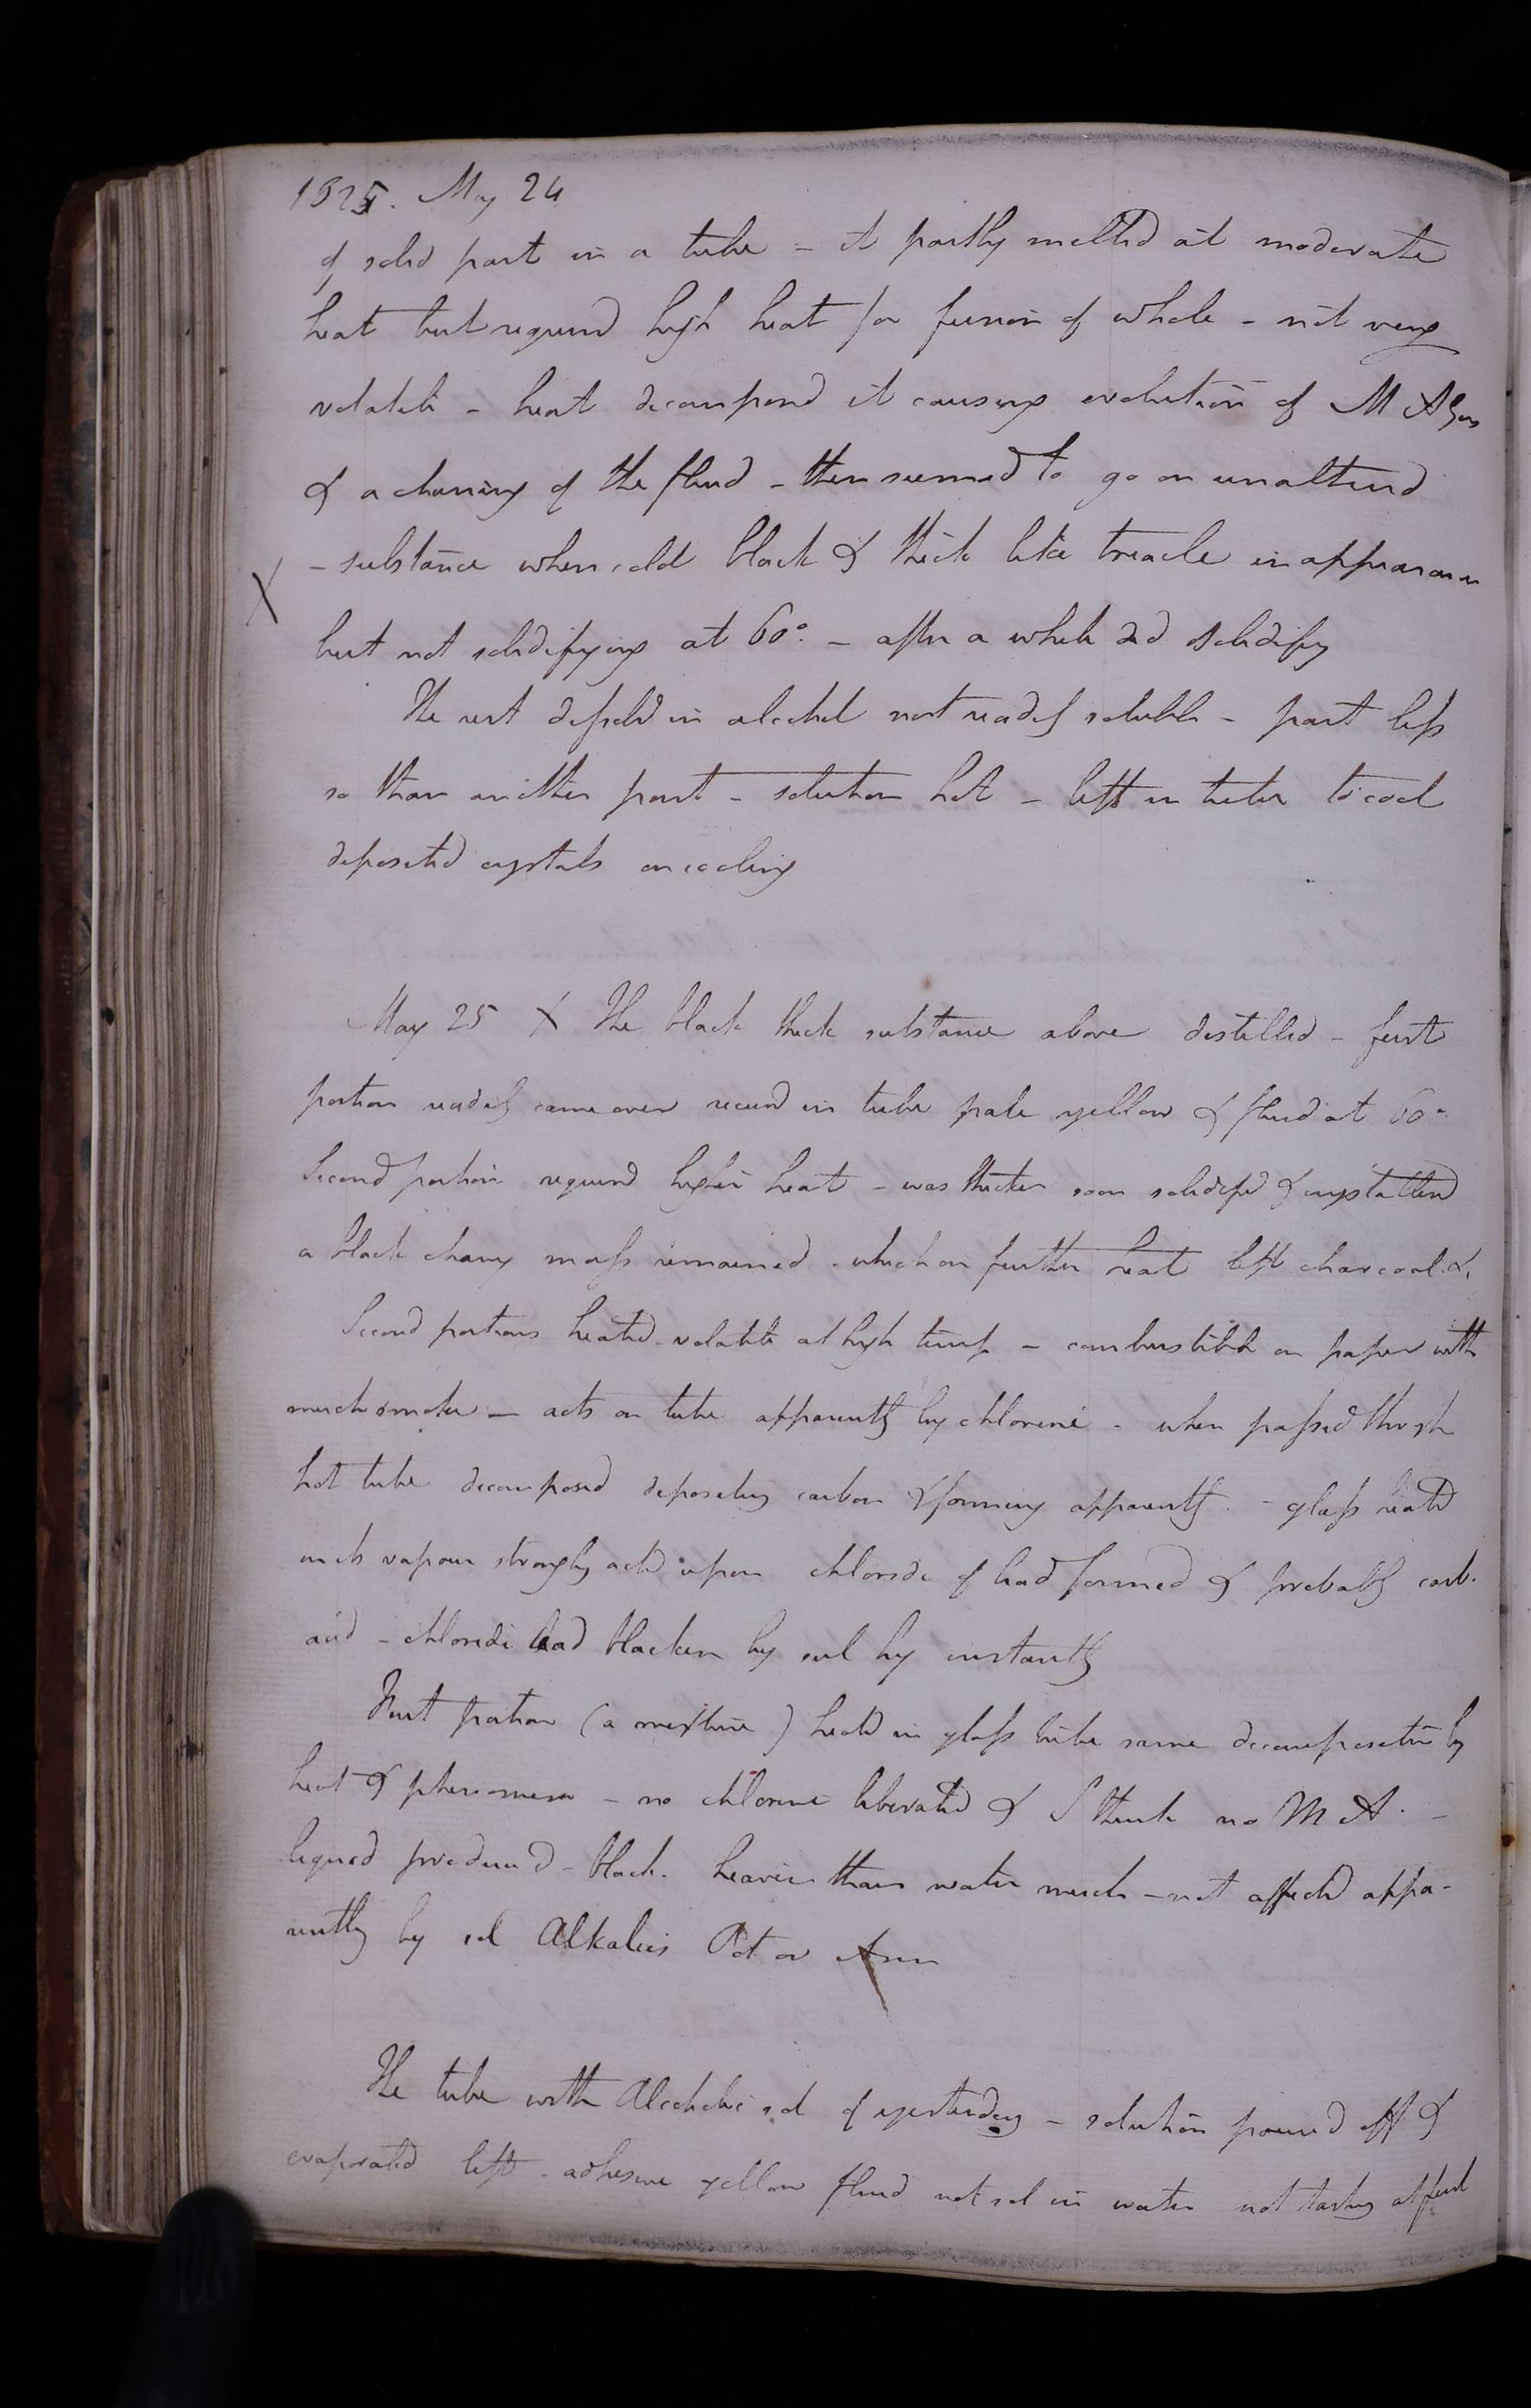 1825. May 24
of solid part in a tube - it partly melted at moderate
heat but required high heat for fusion of whole - not very
volatile - heat decomposed it causing evolution of M A gas
& a charring of the fluid - then seemed to go on unaltered
X - substance when cold black & thick like treacle in appearance
but not solidifying at 60° - after a while did solidify
The rest dissolved in alcohol not readily soluble - part less
so than another part - solution hot - left in tube to cool
deposited crystals on cooling
May 25 X The black thick substance above distilled - first
portion readily came over received in tube pale yellow & fluid at 60°
Second portion required higher heat - was thicker soon solidified & crystallised
a black charry mass remained - which on further heat left charcoal &c
Second portions heated - volatile at high temp - combustible on paper with
much smoke - acts on tube apparently by chlorine - when passed through
hot tube decomposed depositing carbon & forming apparently - glass heated
in its vapour strongly acted upon chloride of lead formed & probably carb.
acid - chloride lead blacken by sul hy instantly
First portion (a mixture) heated in glass tube same decomposition by
heat & phenomena - no chlorine liberated & I think no M A. -
liquid produced - black. heavier than water much - not affected appa-
rently by sol Alkalies Pot or Amm
The tube with Alcoholic sol of yesterday - solution poured off &
evaporated left - adhesive yellow fluid not sol in water not tasting at first